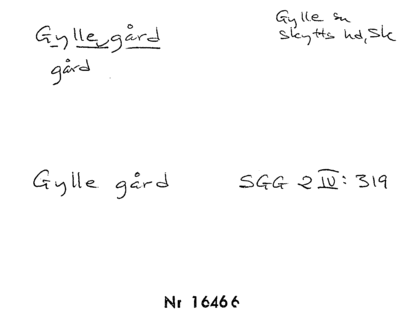 Gylle gård
gård
Gylle sn
Skytts hd, Sk
Gylle gård
SGG 2 IV: 319
Nr 16466